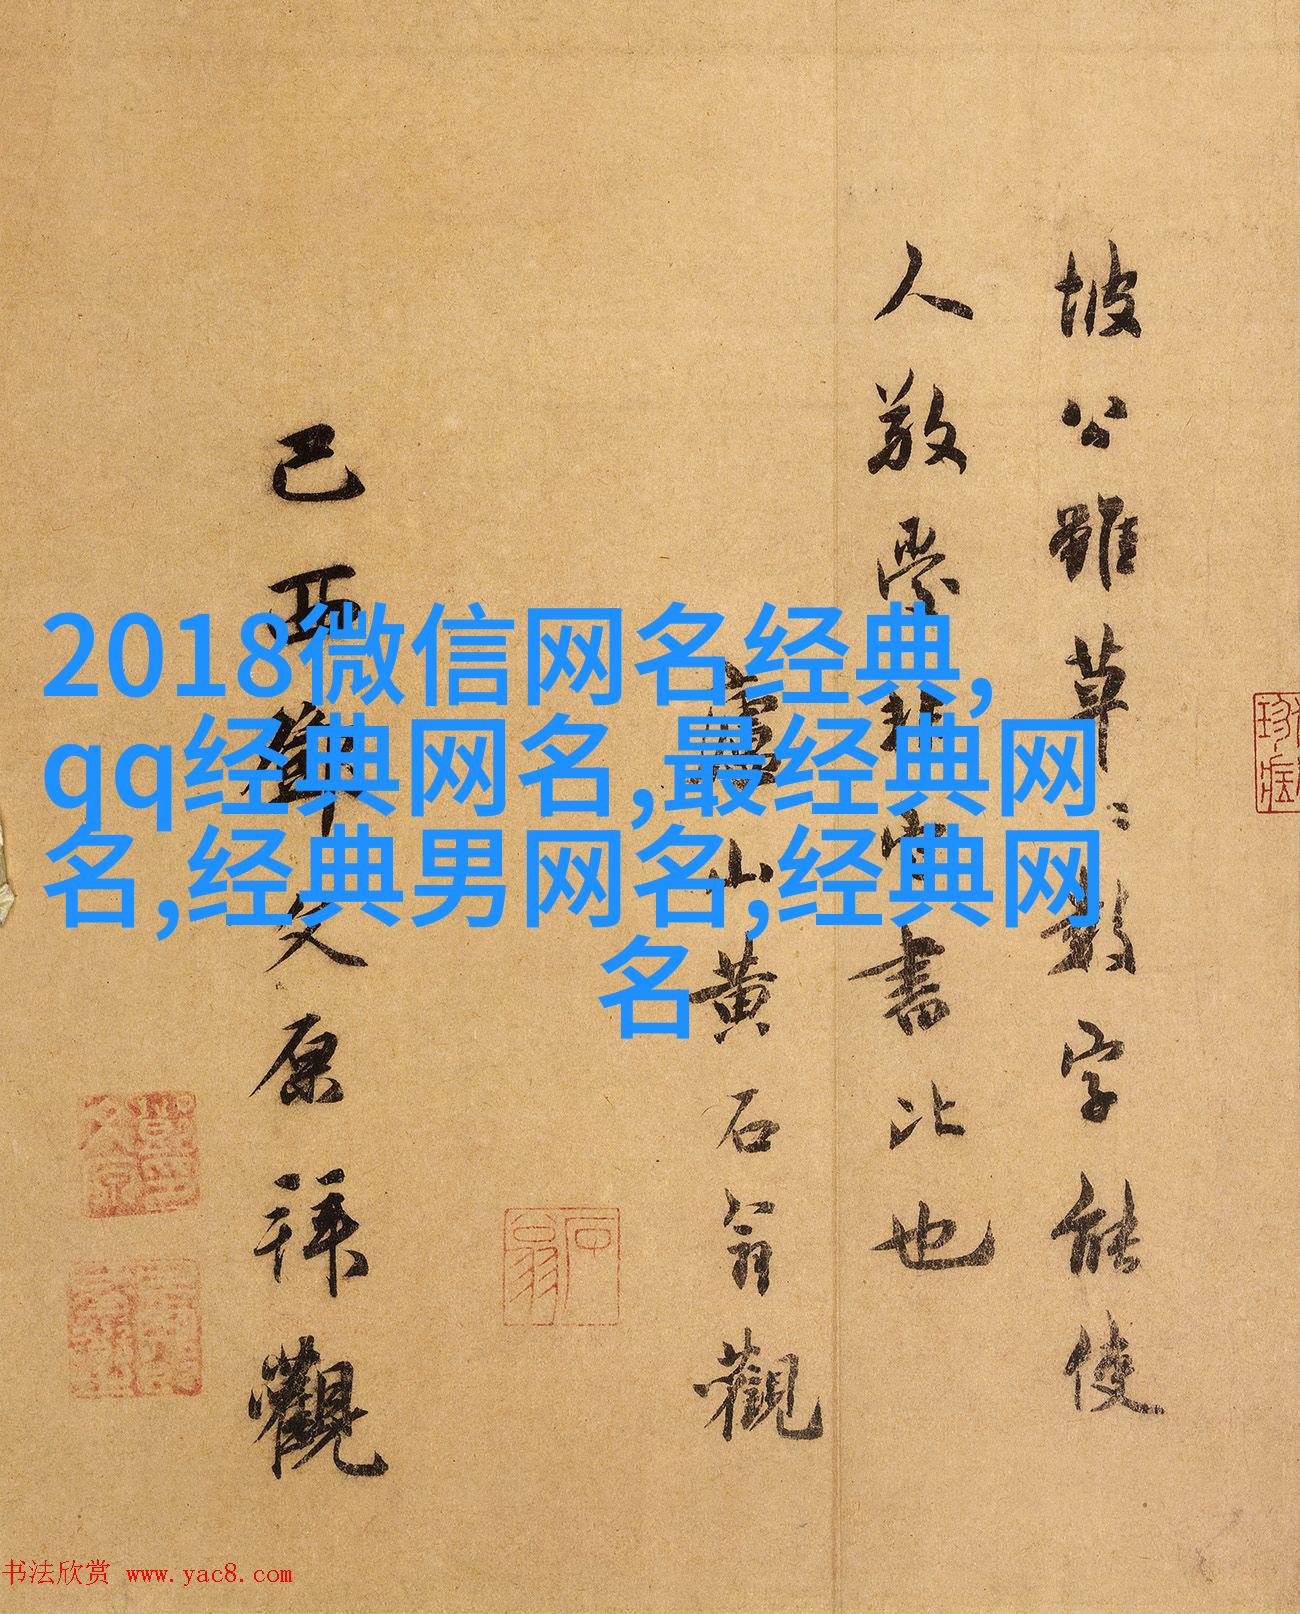 2018微信网名经典,
qq经典网名,最经典网
名,经典男网名,经典网
名
坡公雖草〻數字能使
人敬愛非官書比也
廬山黃石翁觀
石翁
己酉鄧文原拜觀
书法欣赏 www.yac8.com